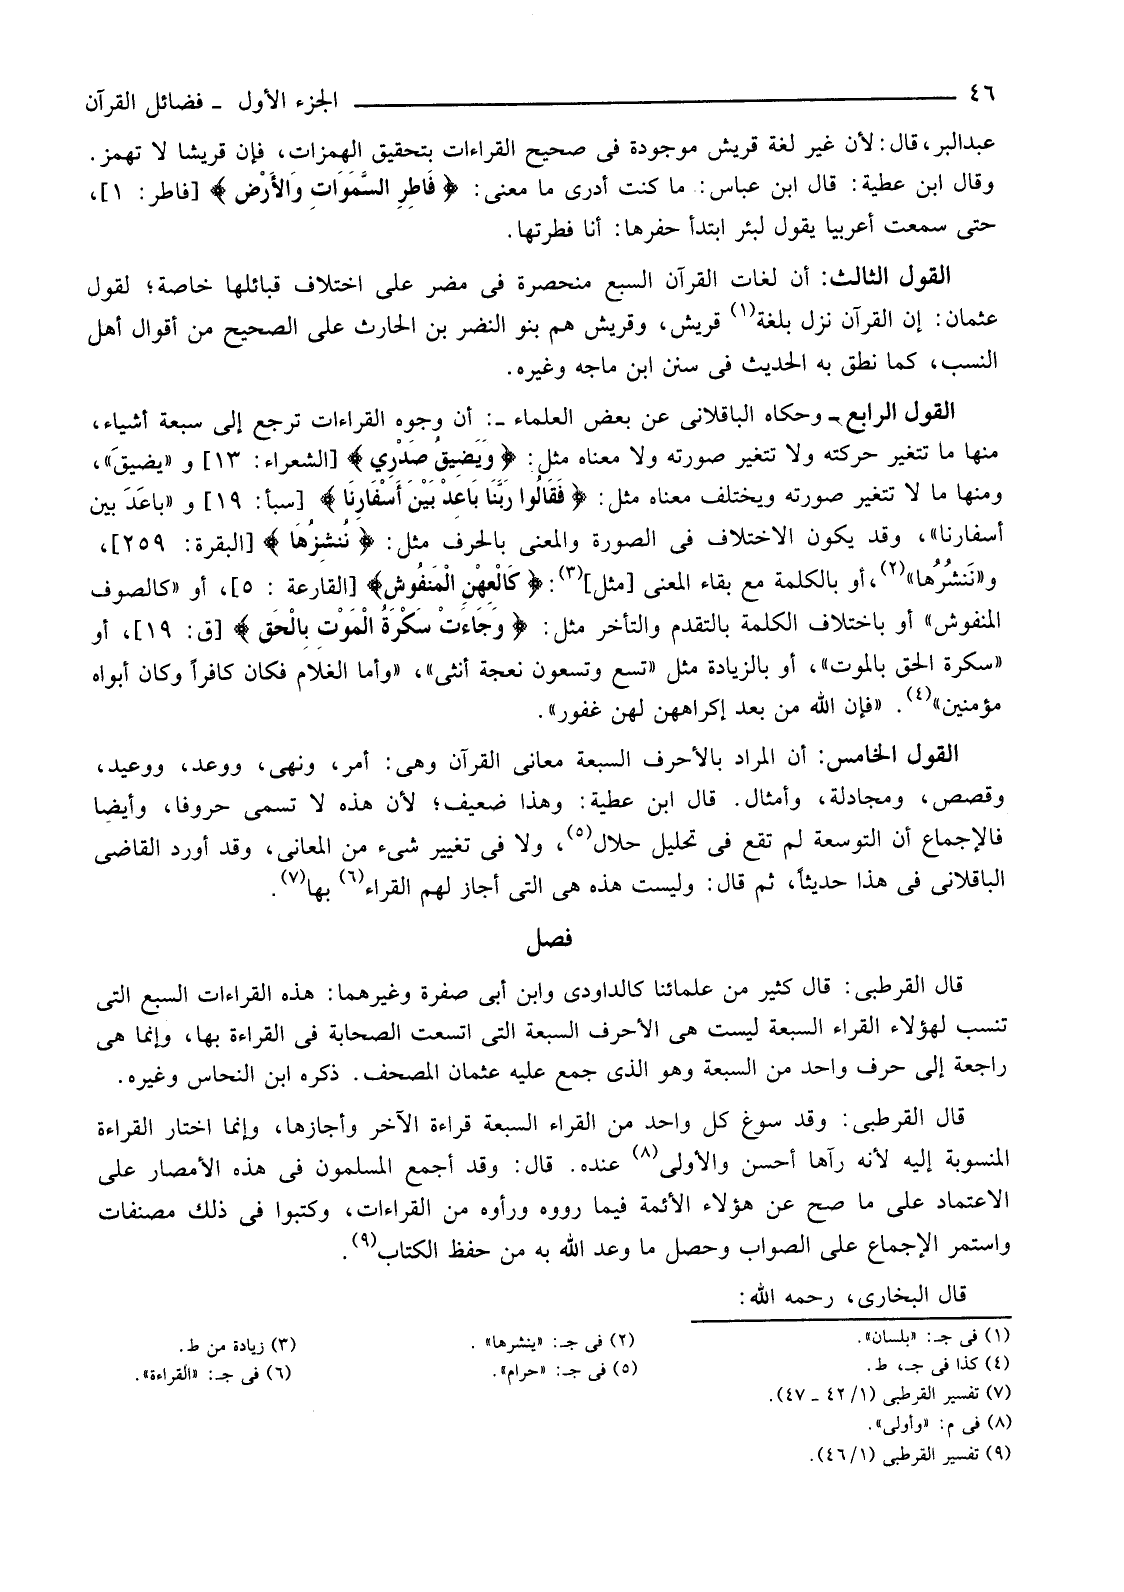 ٤٦ ــــــــــــــــــــ الجزء الأول ـ فضائل القرآن
عبدالبر، قال: لأن غير لغة قريش موجودة فى صحيح القراءات بتحقيق الهمزات، فإن قريشا لا تهمز.
وقال ابن عطية: قال ابن عباس: ما كنت أدرى ما معنى: ﴿ فَاطِرِ السَّمَوَاتِ وَالأَرْضِ ﴾ [فاطر: ١]،
حتى سمعت أعربيا يقول لبئر ابتدأ حفرها: أنا فطرتها.
القول الثالث: أن لغات القرآن السبع منحصرة فى مضر على اختلاف قبائلها خاصة؛ لقول
عثمان: إن القرآن نزل بلغة(١) قريش، وقريش هم بنو النضر بن الحارث على الصحيح من أقوال أهل
النسب، كما نطق به الحديث فى سنن ابن ماجه وغيره.
القول الرابع ـ وحكاه الباقلانى عن بعض العلماء ـ: أن وجوه القراءات ترجع إلى سبعة أشياء،
منها ما تتغير حركته ولا تتغير صورته ولا معناه مثل: ﴿ وَيَضِيقُ صَدْرِي ﴾ [الشعراء: ١٣] و «يضيقَ»،
ومنها ما لا تتغير صورته ويختلف معناه مثل: ﴿ فَقَالُوا رَبَّنَا بَاعِدْ بَيْنَ أَسْفَارِنَا ﴾ [سبأ: ١٩] و «باعَدَ بين
أسفارنا»، وقد يكون الاختلاف فى الصورة والمعنى بالحرف مثل: ﴿ نُنشِزُهَا ﴾ [البقرة: ٢٥٩]،
و«نَنشُرُها»(٢)، أو بالكلمة مع بقاء المعنى [مثل](٣): ﴿ كَالْعِهْنِ الْمَنفُوشِ﴾ [القارعة : ٥]، أو «كالصوف
المنفوش» أو باختلاف الكلمة بالتقدم والتأخر مثل: ﴿ وَجَاءَتْ سَكْرَةُ الْمَوْتِ بِالْحَقِّ ﴾ [ق: ١٩]، أو
«سكرة الحق بالموت»، أو بالزيادة مثل «تسع وتسعون نعجة أنثى»، «وأما الغلام فكان كافراً وكان أبواه
مؤمنين»(٤). «فإن الله من بعد إكراههن لهن غفور».
القول الخامس: أن المراد بالأحرف السبعة معانى القرآن وهى: أمر، ونهى، ووعد، ووعيد،
وقصص، ومجادلة، وأمثال. قال ابن عطية: وهذا ضعيف؛ لأن هذه لا تسمى حروفا، وأيضا
فالإجماع أن التوسعة لم تقع فى تحليل حلال(٥)، ولا فى تغيير شىء من المعانى، وقد أورد القاضى
الباقلانى فى هذا حديثاً، ثم قال: وليست هذه هى التى أجاز لهم القراء(٦) بها(٧).
فصل
قال القرطبى: قال كثير من علمائنا كالداودى وابن أبى صفرة وغيرهما: هذه القراءات السبع التى
تنسب لهؤلاء القراء السبعة ليست هى الأحرف السبعة التى اتسعت الصحابة فى القراءة بها، وإنما هى
راجعة إلى حرف واحد من السبعة وهو الذى جمع عليه عثمان المصحف. ذكره ابن النحاس وغيره.
قال القرطبى: وقد سوغ كل واحد من القراء السبعة قراءة الآخر وأجازها، وإنما اختار القراءة
المنسوبة إليه لأنه رآها أحسن والأولى(٨) عنده. قال: وقد أجمع المسلمون فى هذه الأمصار على
الاعتماد على ما صح عن هؤلاء الأئمة فيما رووه ورأوه من القراءات، وكتبوا فى ذلك مصنفات
واستمر الإجماع على الصواب وحصل ما وعد الله به من حفظ الكتاب(٩).
قال البخارى، رحمه الله:
(١) فى جـ: «بلسان». (٢) فى جـ: «ينشرها» . (٣) زيادة من ط.
(٤) كذا فى جـ، ط. (٥) فى جـ: «حرام». (٦) فى جـ: «القراءة».
(٧) تفسير القرطبى (١/ ٤٢ ـ ٤٧).
(٨) فى م: «وأولى».
(٩) تفسير القرطبى (١/ ٤٦).